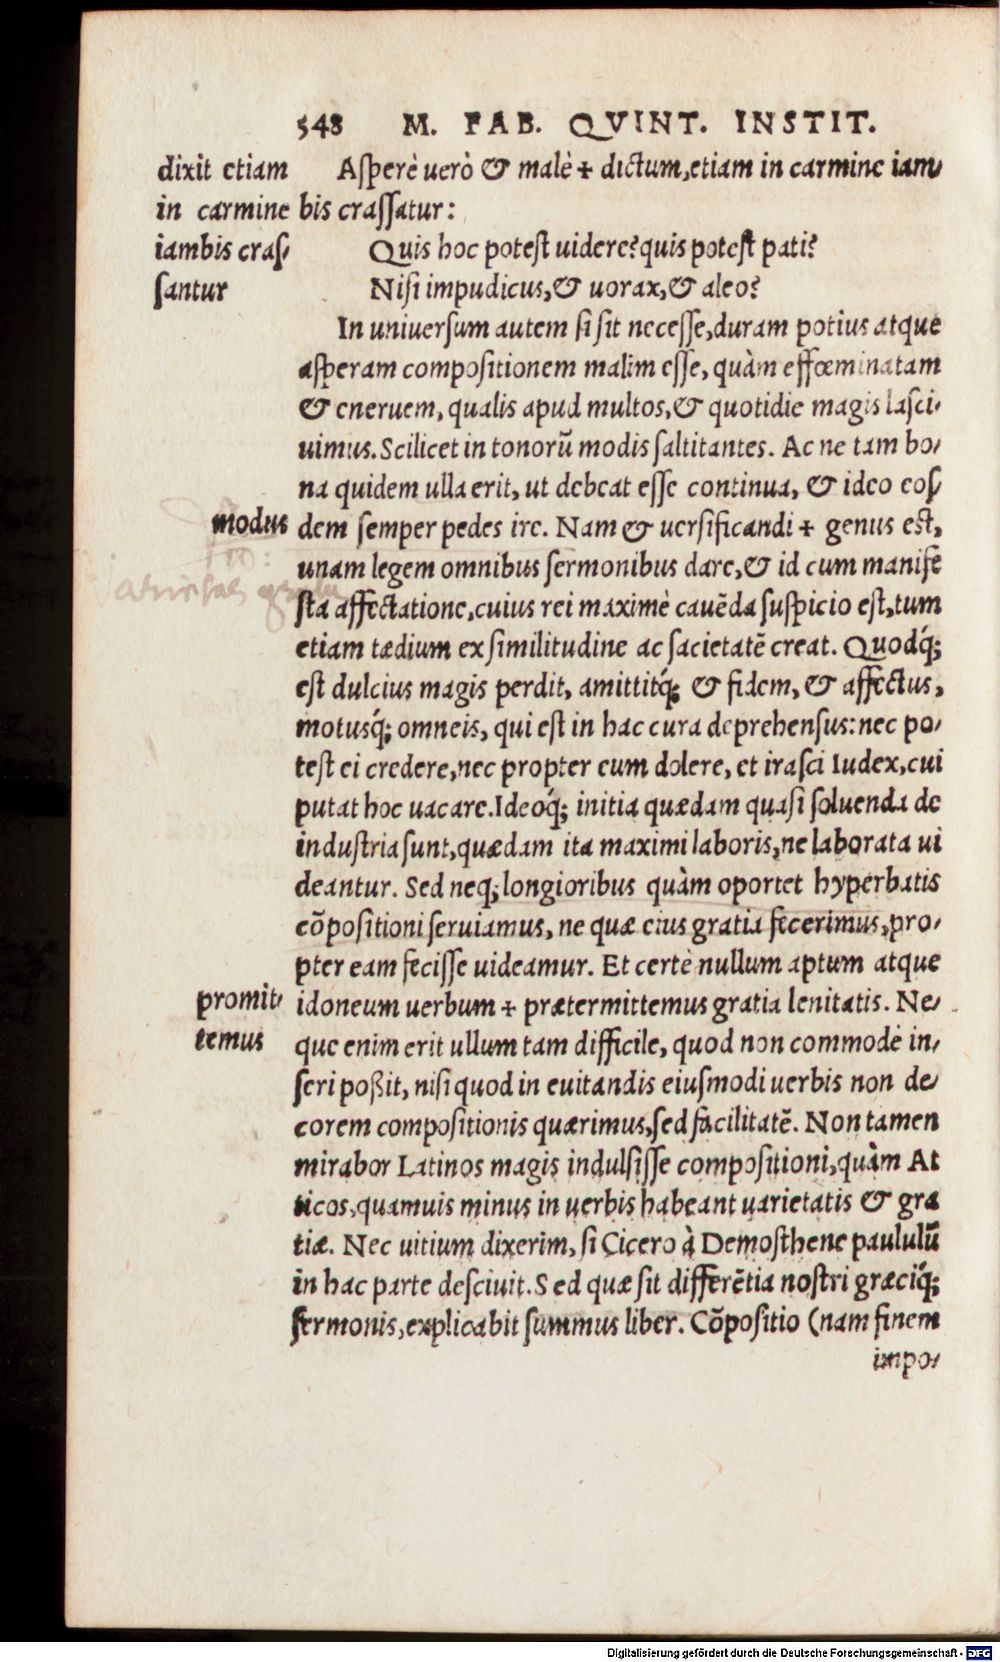 548 M. FAB. QVINT. INSTIT.
dixit etiam
in carmine
iambis craſ-
ſantur
Aſperè uerò & malè + dictum, etiam in carmine iam-
bis craſſatur:
Quis hoc poteſt uidere? quis poteſt pati?
Niſi impudicus, & uorax, & aleo?
In uniuerſum autem ſi ſit neceſſe, duram potius atque
aſperam compoſitionem malim eſſe, quàm effœminatam
& eneruem, qualis apud multos, & quotidie magis laſci-
uimus. Scilicet in tonorū modis ſaltitantes. Ac ne tam bo-
na quidem ulla erit, ut debeat eſſe continua, & ideo eoſ-
modus
dem ſemper pedes ire. Nam & uerſificandi + genus eſt,
unam legem omnibus ſermonibus dare, & id cum manife
ſta affectatione, cuius rei maximè cauēda ſuſpicio eſt, tum
etiam tædium ex ſimilitudine ac ſacietatē creat. Quodq́;
eſt dulcius magis perdit, amittitq́; & fidem, & affectus,
motusq́; omneis, qui eſt in hac cura deprehenſus: nec po-
teſt ei credere, nec propter eum dolere, et iraſci Iudex, cui
putat hoc uacare. Ideoq́; initia quædam quaſi ſoluenda de
induſtria ſunt, quædam ita maximi laboris, ne laborata ui
deantur. Sed neq; longioribus quàm oportet hyperbatis
cōpoſitioni ſeruiamus, ne quæ eius gratia fecerimus, pro-
pter eam feciſſe uideamur. Et certè nullum aptum atque
promit-
temus
idoneum uerbum + prætermittemus gratia lenitatis. Ne-
que enim erit ullum tam difficile, quod non commodè in-
ſeri poßit, niſi quod in euitandis eiuſmodi uerbis non de-
corem compoſitionis quærimus, ſed facilitatē. Non tamen
mirabor Latinos magis indulſiſſe compoſitioni, quàm At
ticos, quamuis minus in uerbis habeant uarietatis & gra
tiæ. Nec uitium dixerim, ſi Cicero à Demoſthene paululū
in hac parte deſciuit. Sed quæ ſit differētia noſtri græciq́;
ſermonis, explicabit ſummus liber. Cōpoſitio (nam finem
impo-
Digitalisierung gefördert durch die Deutsche Forschungsgemeinschaft - DFG